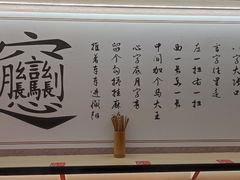 字大张口
言字往里走
左一扭右一扭
西一长东一长
中间加个马大王
心字底月字旁
留个勾搭挂麻
推着车车进咸阳
𰻞